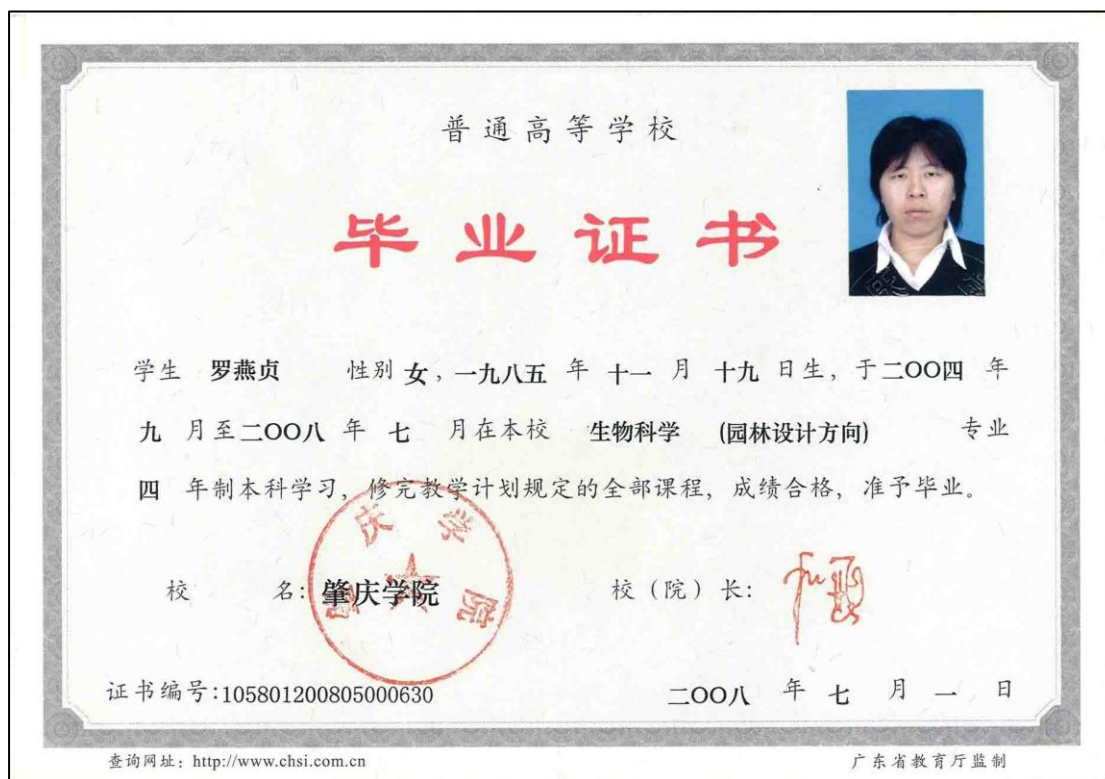 普通高等学校
毕业证书
学生 罗燕贞 性别 女，一九八五 年 十一 月 十九 日生，于二〇〇四 年
九 月至二〇〇八 年 七 月在本校 生物科学 (园林设计方向) 专业
四 年制本科学习，修完教学计划规定的全部课程，成绩合格，准予毕业。
校 名：肇庆学院 校（院）长：
肇庆学院
证书编号：105801200805000630 二〇〇八 年 七 月 一 日
查询网址：http://www.chsi.com.cn 广东省教育厅监制